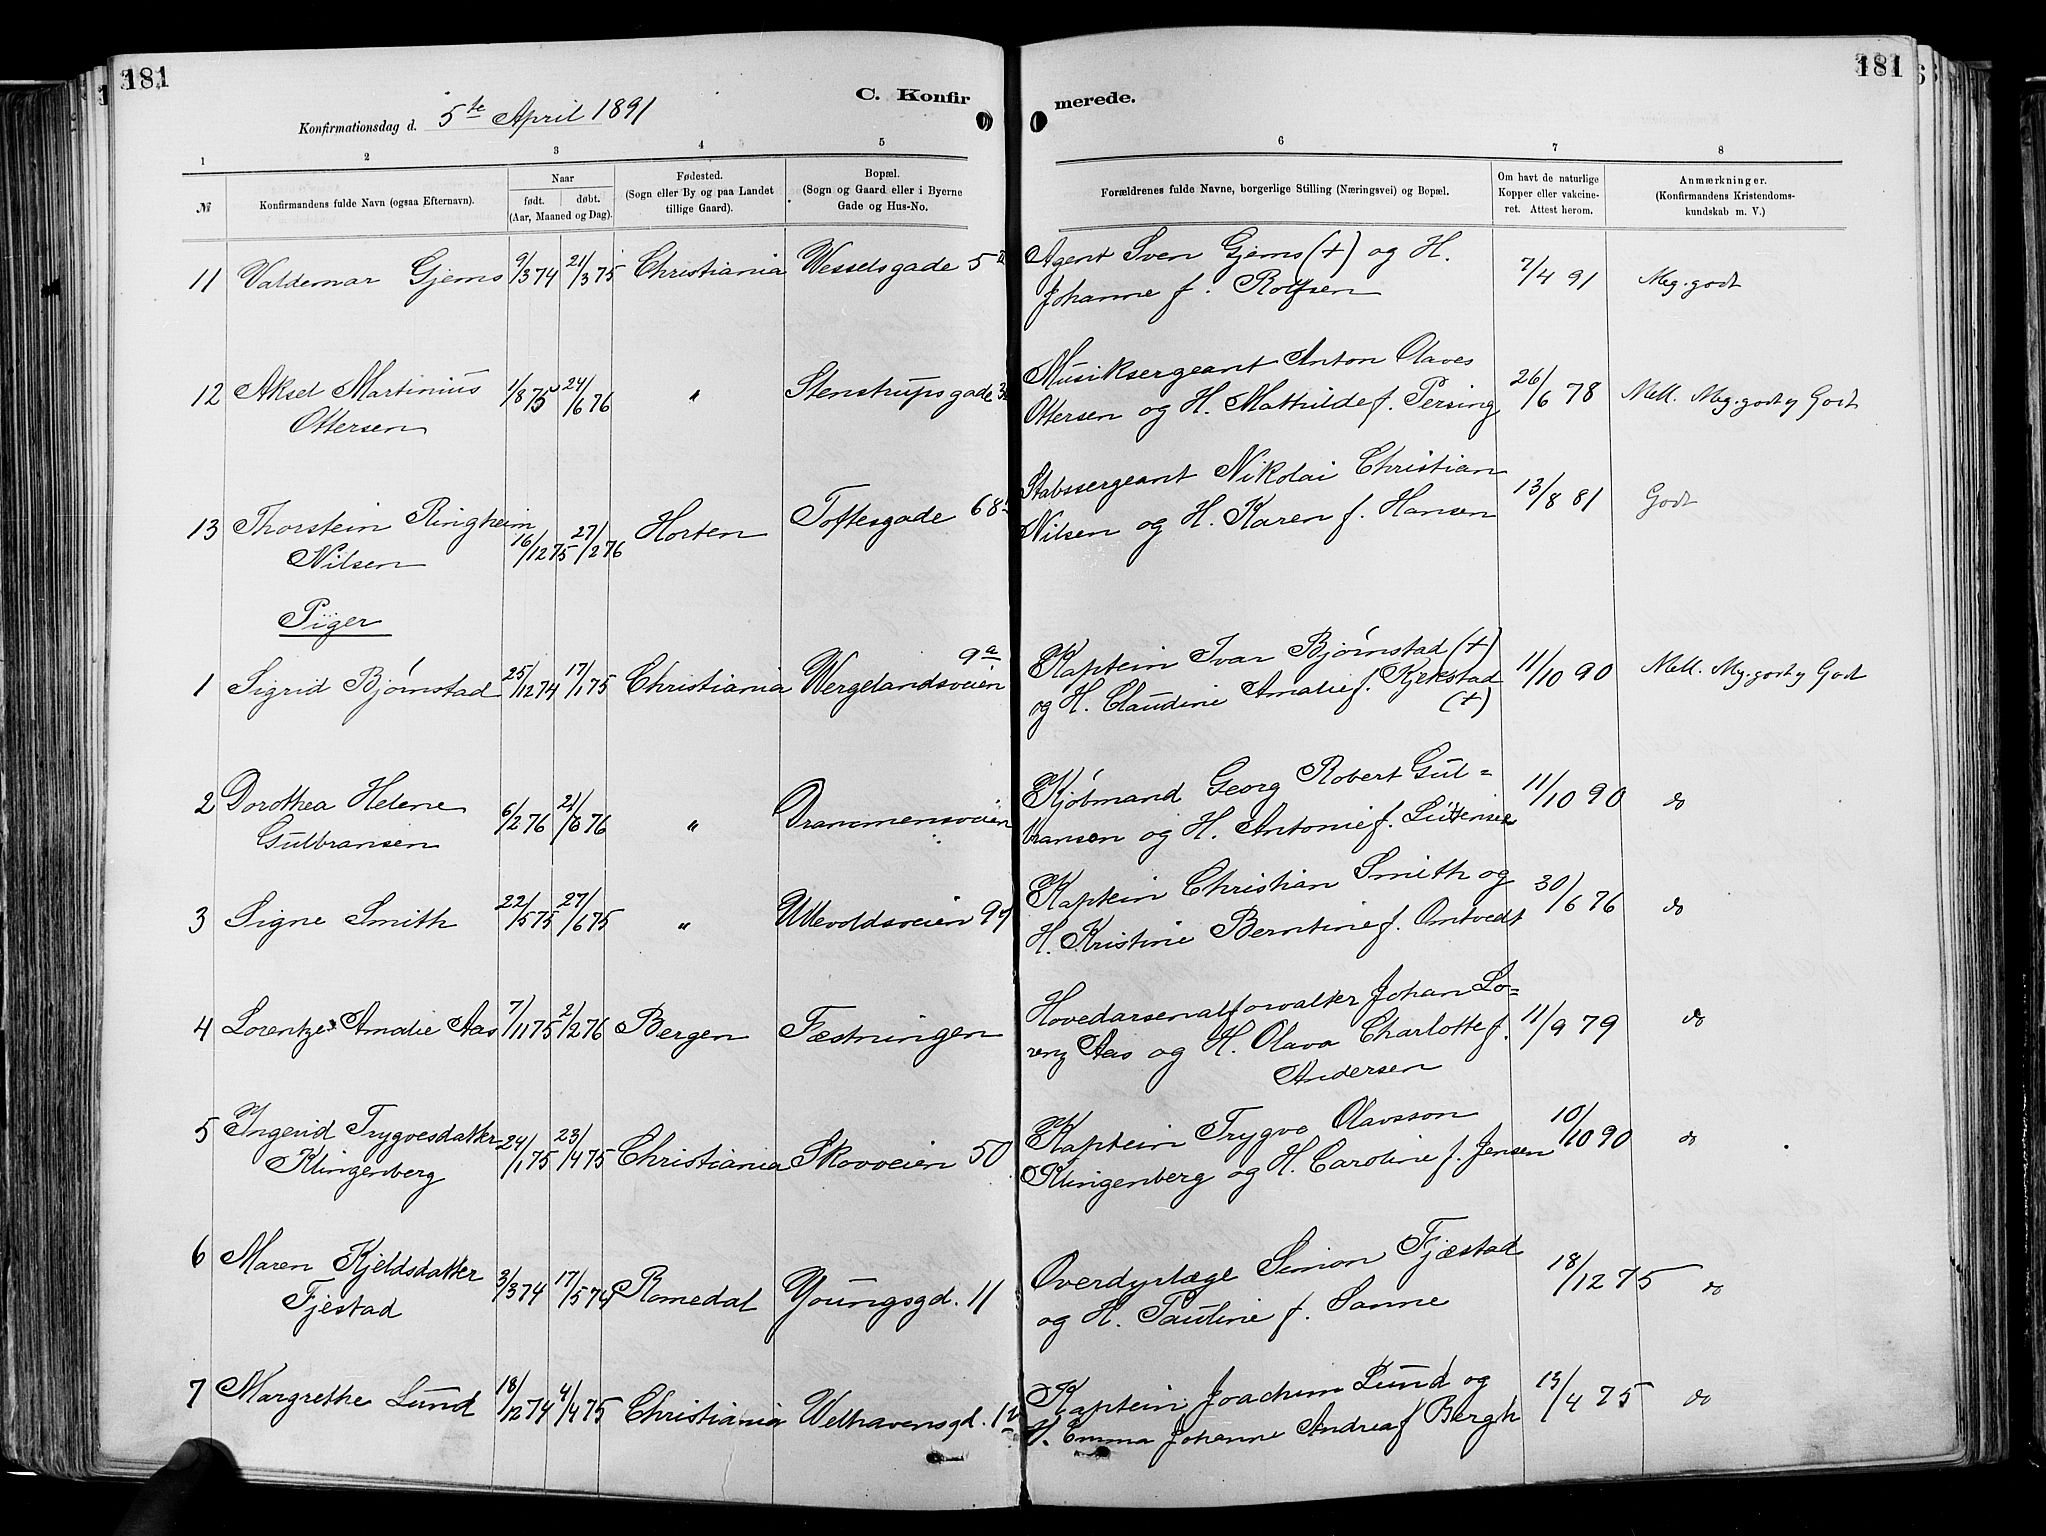 181
181
C. Konfir
merede.
Konfirmationsdag d. 5te April 1891
1 2 3 4 5
6 7 8
№
Konfirmandens fulde Navn (ogsaa Efternavn).
Naar
født. døbt.
(Aar, Maaned og Dag).
Fødested.
(Sogn eller By og paa Landet
tillige Gaard).
Bopæl.
(Sogn og Gaard eller i Byerne
Gade og Hus-No.
Forældrenes fulde Navne, borgerlige Stilling (Næringsvei) og Bopæl.
Om havt de naturlige
Kopper eller vakcine-
ret. Attest herom.
Anmærkninger.
(Konfirmandens Kristendoms-
kundskab m. V.)
11 Valdemar Gjems 9/3 74 21/3 75 Christiania Wesselsgade 5
Agent Sven Gjems (+) og H.
Johanne f. Rolfsen
7/4 91 Meg. godt
12 Aksel Martinius
Ottersen
1/8 75 24/6 76 " Stenstrupsgade
Musiksergeant Anton Olaves
Ottersen og H. Mathilde f. Persing
26/6 78 Mell. Meg. godt og Godt
13 Thorstein Ringheim
Nilsen
16/12 75 27/2 76 Horten Toftesgade 68
Stabssergeant Nikolai Christian
Nilsen og H. Karen f. Hansen
13/8 81 Godt
Piger
1 Sigrid Bjørnstad 25/12 74 17/1 75 Christiania Wergelandsveien 9a
Kaptein Ivar Bjørnstad (+)
og H. Claudine Amalie f. Kjekstad
(+)
11/10 90 Mell. Meg. godt og Godt
2 Dorothea Helene
Gulbransen
6/2 76 21/6 76 " Drammensveien
Kjøbmand Georg Robert Gul=
bransen og H. Antonie f.
11/10 90 do
3 Signe Smith 22/5 75 27/6 75 " Ullevoldsveien
Kaptein Christian Smith og
H. Kristine Berntine f. Omtvedt
30/6 76 do
4 Lorentze Amalie Aas 7/11 75 2/2 76 Bergen Fæstningen
Hovedarsenalforvalter Johan Lo=
renz Aas og H. Olava Charlotte f.
Andersen
11/9 79 do
5 Ingerid Trygvesdatter
Klingenberg
24/1 75 23/4 75 Christiania Skovveien 50
Kaptein Trygve Olavsson
Klingenberg og H. Caroline f. Jensen
10/10 90 do
6 Maren Kjeldsdatter
Fjestad
3/3 74 17/5 74 Romedal Youngsgd. 11
Overdyrlæge Simon Fjæstad
og H. Pauline f. Sanne
18/12 75 do
7 Margrethe Lund 18/12 74 4/4 75 Christiania Welhavensgd.
Kaptein Joachim Lund og
H. Emma Johanne Andrea f Bergh
13/4 75 do